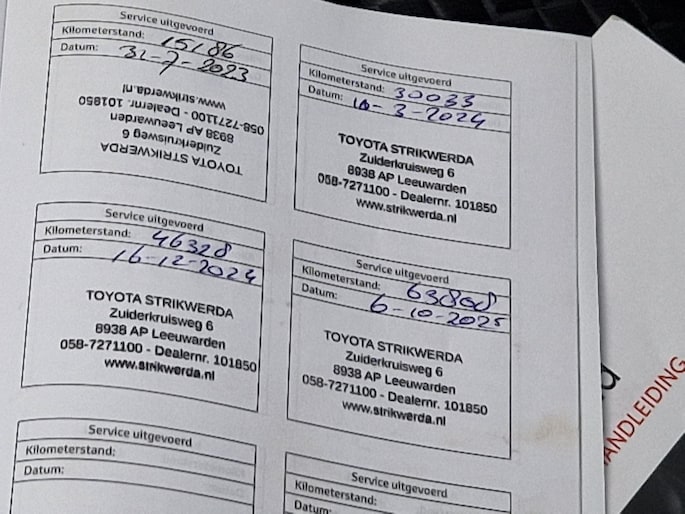 Service uitgevoerd
Kilometerstand: 15186
Datum: 31-7-2023
TOYOTA STRIKWERDA
Zuiderkruisweg 6
8938 AP Leeuwarden
058-7271100 - Dealernr. 101850
www.strikwerda.nl
Service uitgevoerd
Kilometerstand: 30033
Datum: 10-3-2024
TOYOTA STRIKWERDA
Zuiderkruisweg 6
8938 AP Leeuwarden
058-7271100 - Dealernr. 101850
www.strikwerda.nl
Service uitgevoerd
Kilometerstand: 46328
Datum: 16-12-2024
TOYOTA STRIKWERDA
Zuiderkruisweg 6
8938 AP Leeuwarden
058-7271100 - Dealernr. 101850
www.strikwerda.nl
Service uitgevoerd
Kilometerstand: 63808
Datum: 6-10-2025
TOYOTA STRIKWERDA
Zuiderkruisweg 6
8938 AP Leeuwarden
058-7271100 - Dealernr. 101850
www.strikwerda.nl
Service uitgevoerd
Kilometerstand:
Datum:
Service uitgevoerd
Kilometerstand:
Datum:
ANDLEIDING